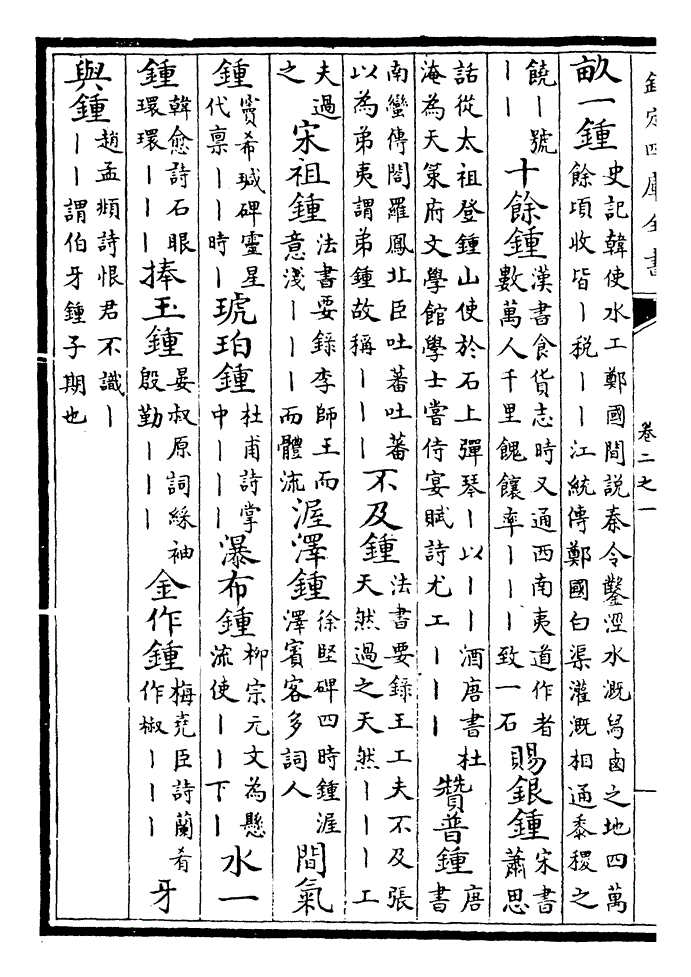 欽定四庫全書
卷二之一
畝一鍾
史記韓使水工鄭國間説秦令鑿涇水溉舄鹵之地四萬
餘頃收皆丨税丨丨江統傳鄭國白渠灌溉相通黍稷之
饒丨號
丨丨
十餘鍾
漢書食貨志時又通西南夷道作者
數萬人千里餽饟率丨丨丨致一石
賜銀鍾
宋書
蕭思
話從太祖登鍾山使於石上彈琴丨以丨丨酒唐書杜
淹為天策府文學館學士嘗侍宴賦詩尤工丨丨丨
贊普鍾
唐
書
南蠻傳閤羅鳳北臣吐蕃吐蕃
以為弟夷謂弟鍾故稱丨丨丨
不及鍾
法書要録王工夫不及張
天然過之天然丨丨丨工
夫過
之
宋祖鍾
法書要録李師王而
意淺丨丨丨而體流
渥澤鍾
徐堅碑四時鍾渥
澤賓客多詞人
間氣
鍾
竇希瑊碑靈星
代禀丨丨時丨
琥珀鍾
杜甫詩掌
中丨丨丨
瀑布鍾
柳宗元文為懸
流使丨丨下丨
水一
鍾
韓愈詩石眼
環環丨丨丨
捧玉鍾
晏叔原詞綵袖
殷勤丨丨丨
金作鍾
梅堯臣詩蘭肴
作椒丨丨丨
牙
與鍾
趙孟頫詩恨君不識丨
丨丨謂伯牙鍾子期也